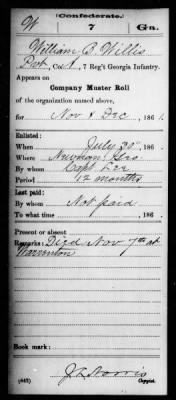 Confederate.
W 7 Ga.
William B. Willis
Pvt, Co. A, 7 Reg't Georgia Infantry.
Appears on
Company Muster Roll
of the organization named above,
for Nov & Dec, 186
Enlisted:
When July 30, 186
Where Newnan Geo
By whom Capt
Period 12 months
Last paid:
By whom Not paid
To what time , 186
Present or absent
Remarks: Died Nov 7th at
Warrenton
Book mark:
(642) Copyist.